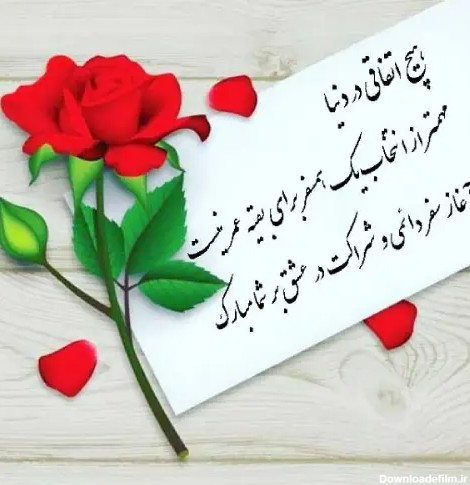 هیچ اتفاقی در دنیا
مهمتر از انتخاب یک همسفر برای بقیه عمر نیست
آغاز سفر دائمی و شراکت در عشق بر شما مبارک
Downloadefilm.ir